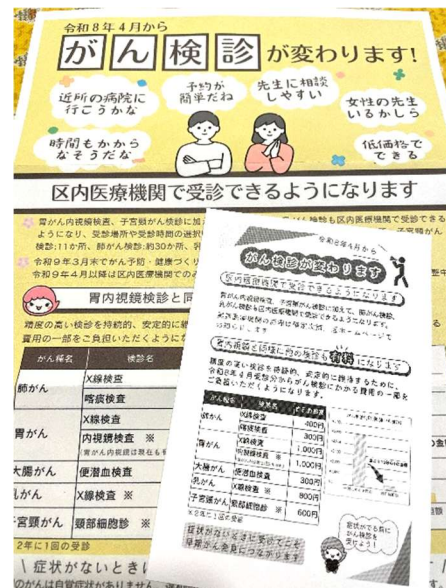 令和8年4月から
がん検診が変わります!
近所の病院に
行こうかな
予約が
簡単だね
先生に相談
しやすい
女性の先生
いるかしら
時間もかから
なそうだな
低価格で
できる
区内医療機関で受診できるようになります
胃がん内視鏡検査、子宮頸がん検診に加え
検診も区内医療機関で受診できる
ようになり、受診場所や受診時間の選択
検診:11か所、肺がん検診:約30か所、乳
令和9年3月末でがん予防・健康づくり
令和9年4月以降は区内医療機関でのみ
胃内視鏡検診と同
精度の高い検診を持続的、安定的に維
費用の一部をご負担いただくようにな
がん種名 検診名
肺がん X線検査
喀痰検査
胃がん X線検査
内視鏡検査 ※
大腸がん 便潜血検査
乳がん X線検査 ※
子宮頸がん 頸部細胞診 ※
2年に1回の受診
症状がないときに
のがんは自覚症状がありません
令和8年4月から
がん検診が変わります
区内医療機関で受診できるようになります
胃がん内視鏡検査、子宮頸がん検診に加えて、肺がん検診、
乳がん検診も区内医療機関で受診できるようになります。
胃内視鏡検診と同様に他の検診も有料になります
精度の高い検診を持続的、安定的に維持するために、
令和8年4月受診分からがん検診にかかる費用の一部を
ご負担いただくようになります。
がん種名 検診名
肺がん X線検査 400円
喀痰検査 300円
胃がん X線検査 1,000円
内視鏡検査 ※ 1,000円
大腸がん 便潜血検査 300円
乳がん X線検査 ※ 800円
子宮頸がん 頸部細胞診 ※ 600円
※2年に1回の受診
症状がないときに受けてこそ
早期がん発見につながります
症状がでる前に
がん検診を
受けよう!